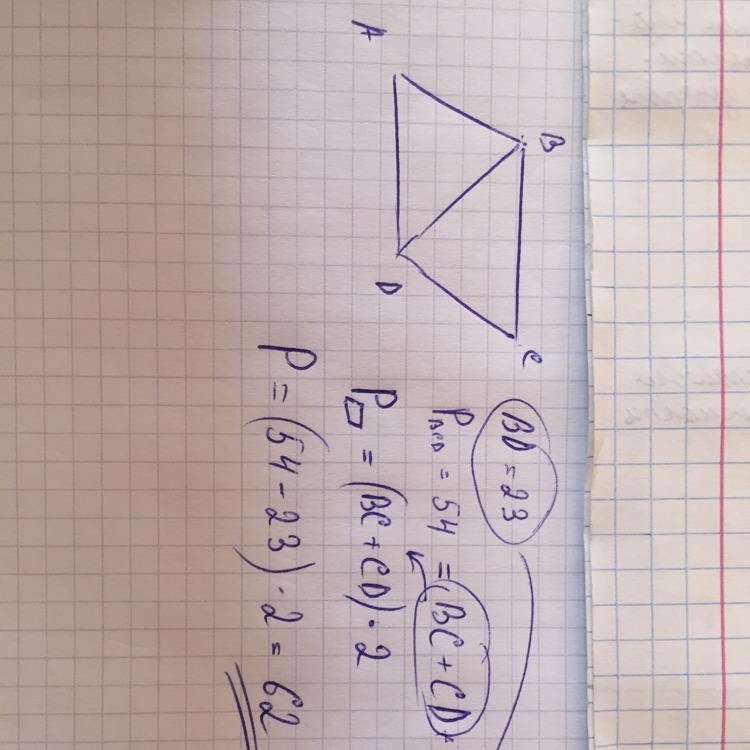 B
C
A
D
BD = 23
P BCD = 54 = (BC + CD) +
P▱ = (BC + CD) · 2
P = (54 - 23) · 2 = 62